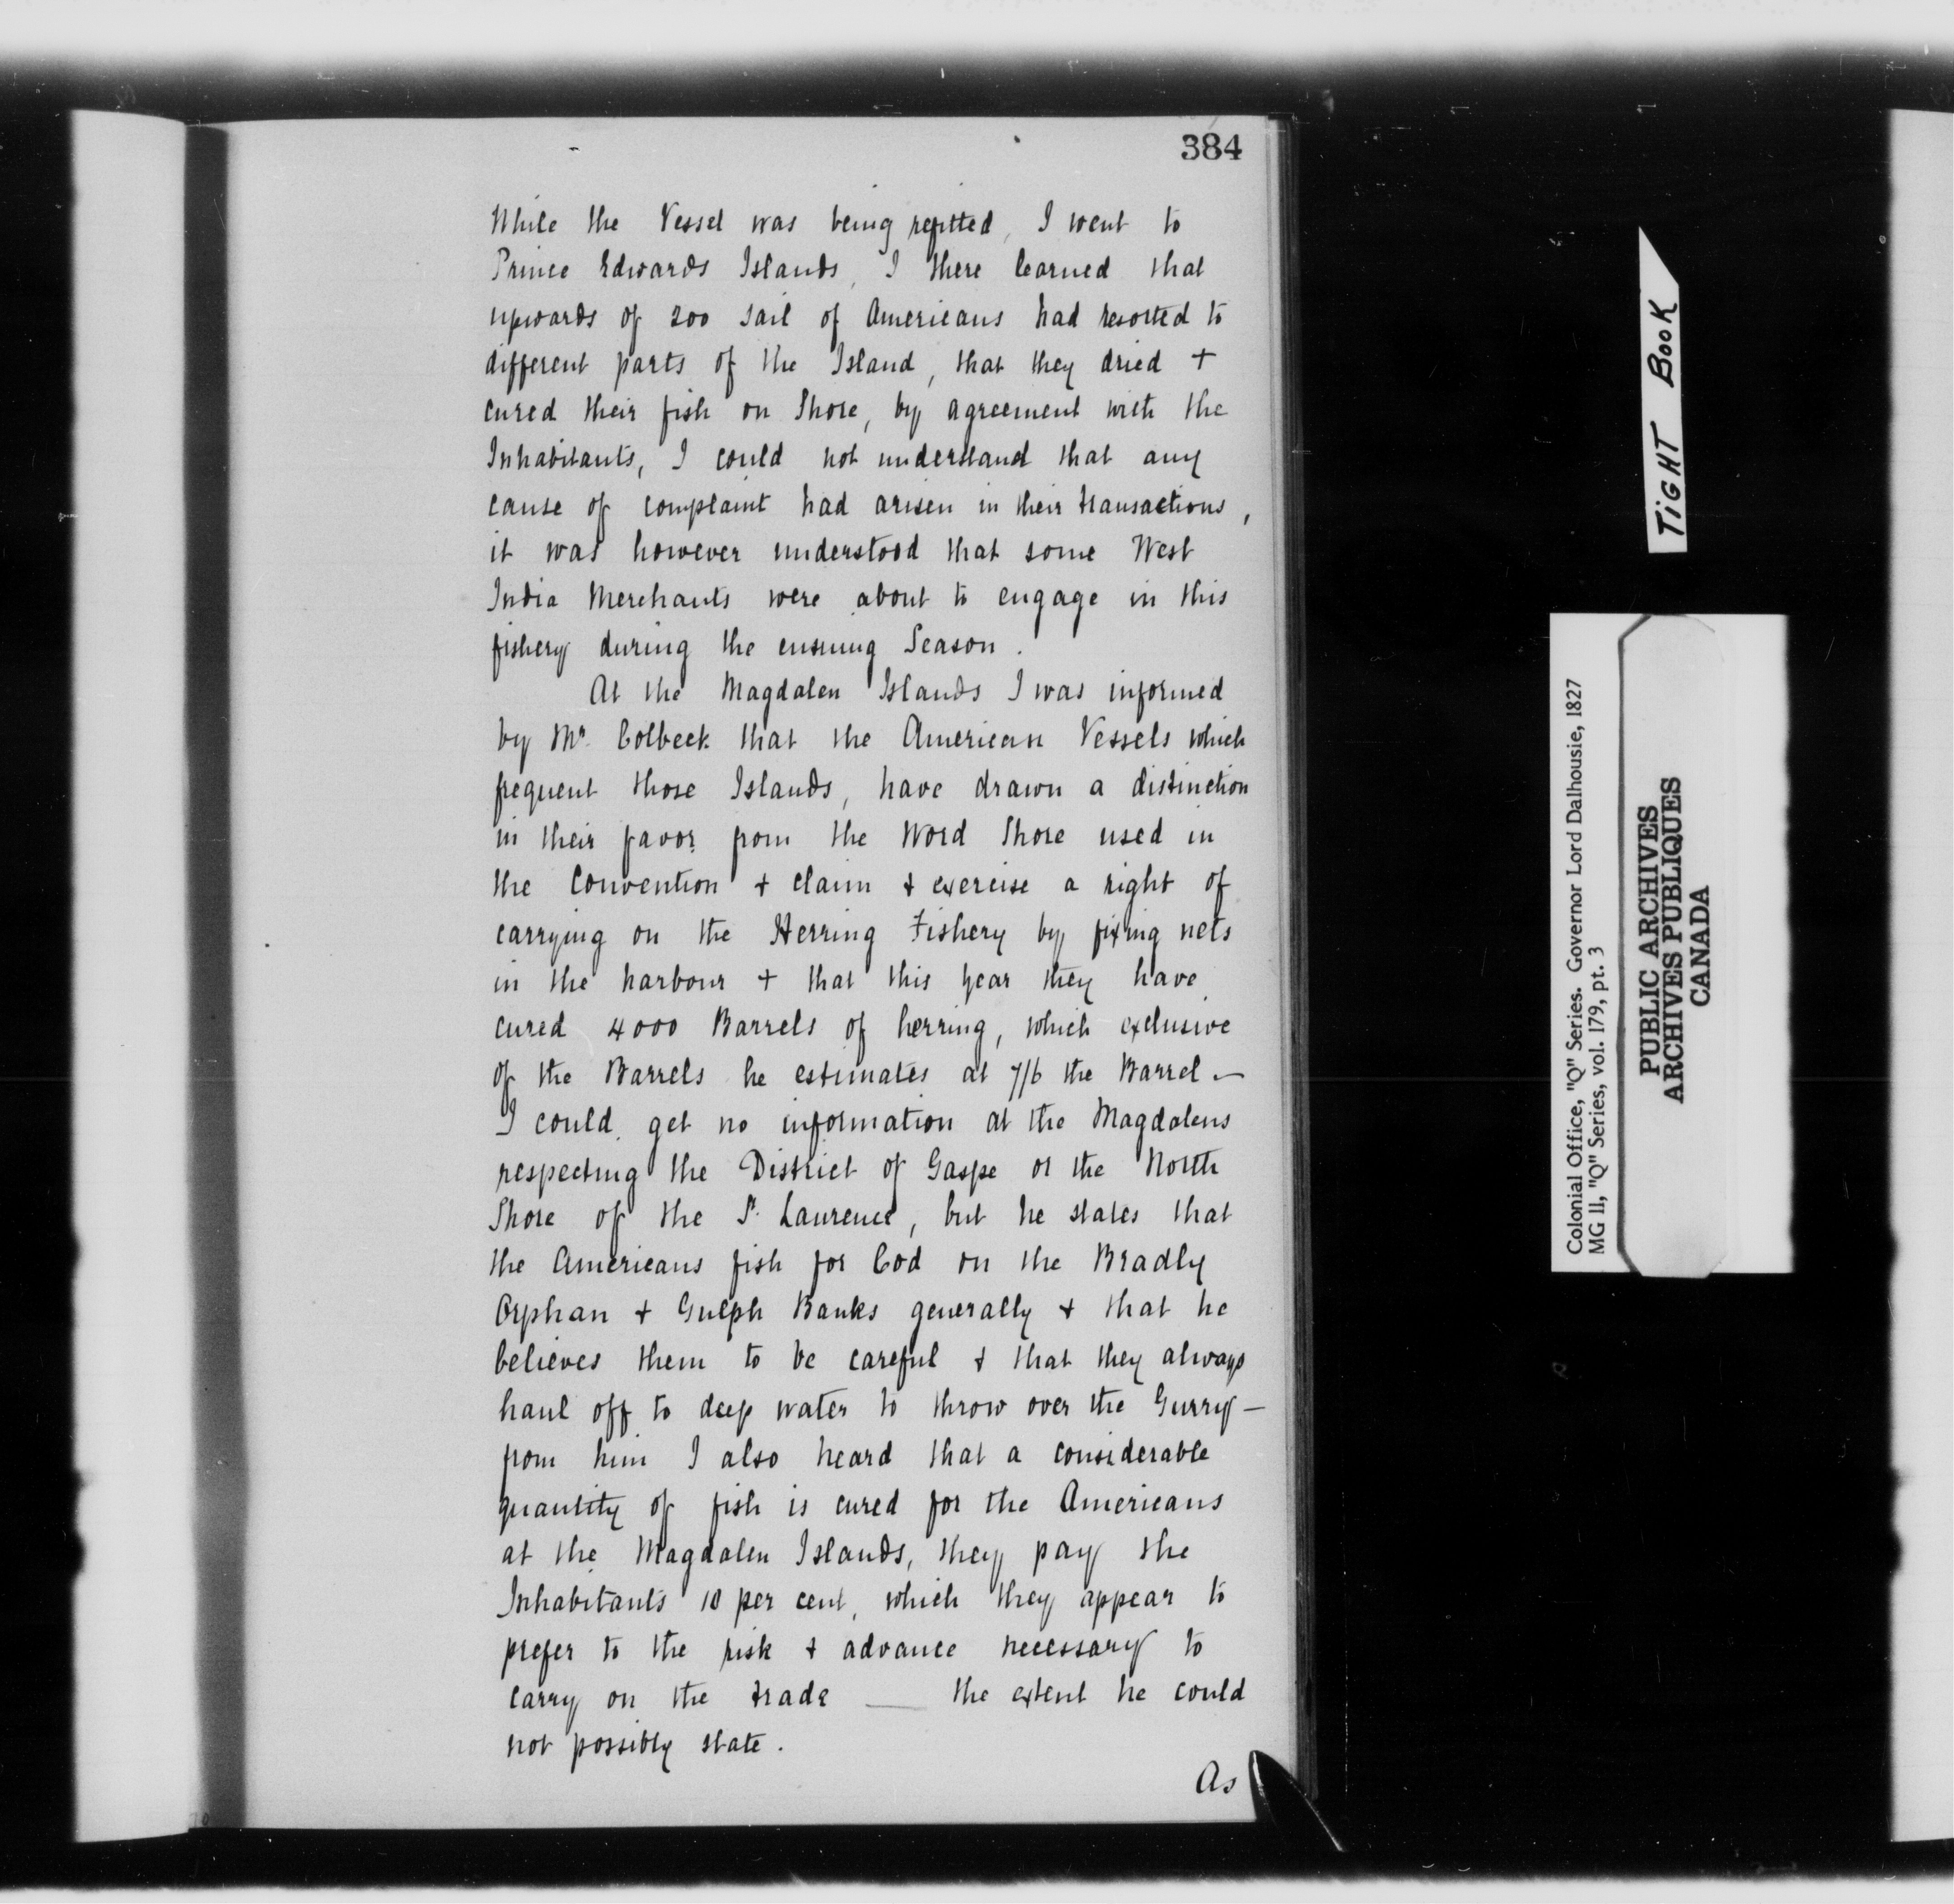 384
While the Vessel was being refitted, I went to
Prince Edwards Islands, I there learned that
upwards of 200 sail of Americans had resorted to
different parts of the Island, that they dried +
cured their fish on Shore, by agreement with the
Inhabitants, I could not understand that any
cause of complaint had arisen in their transactions,
it was however understood that some West
India Merchants were about to engage in this
fishery during the ensuing Season.
At the Magdalen Islands I was informed
by Mr. Colbeck that the American Vessels which
frequent those Islands, have drawn a distinction
in their favor from the Word Shore used in
the Convention + claim + exercise a right of
carrying on the Herring Fishery by fixing nets
in the harbour + that this year they have
cured 4000 Barrels of herring, which exclusive
of the Barrels he estimates at 7/6 the Barrel –
I could get no information at the Magdalens
respecting the District of Gaspe or the North
Shore of the St. Laurence, but he states that
the Americans fish for Cod on the Bradly
Orphan + Gulph Banks generally + that he
believes them to be careful + that they always
haul off to deep water to throw over the Gurry –
from him I also heard that a considerable
quantity of fish is cured for the Americans
at the Magdalen Islands, they pay the
Inhabitants 10 per cent, which they appear to
prefer to the risk + advance necessary to
carry on the trade — the extent he could
not possibly state.
As
TIGHT BOOK
Colonial Office, "Q" Series. Governor Lord Dalhousie, 1827
MG 11, "Q" Series, vol. 179, pt. 3
PUBLIC ARCHIVES
ARCHIVES PUBLIQUES
CANADA